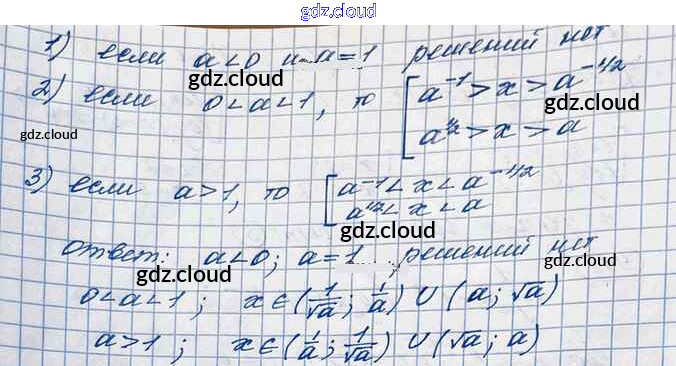 gdz.cloud
gdz.cloud
1) если a<0 и a=1 решений нет
gdz.cloud
2) если 0<a<1, то [ a⁻¹ > x > a^(-1/2)
gdz.cloud
a^(1/2) > x > a
gdz.cloud
gdz.cloud
3) если a>1, то [ a⁻¹ < x < a^(-1/2)
a^(1/2) < x < a
gdz.cloud
ответ: a<0; a=1; решений нет
gdz.cloud
gdz.cloud
0<a<1; x∈(1/√a; 1/a) ∪ (a; √a)
a>1; x∈(1/a; 1/√a) ∪ (√a; a)
gdz.cloud
gdz.cloud